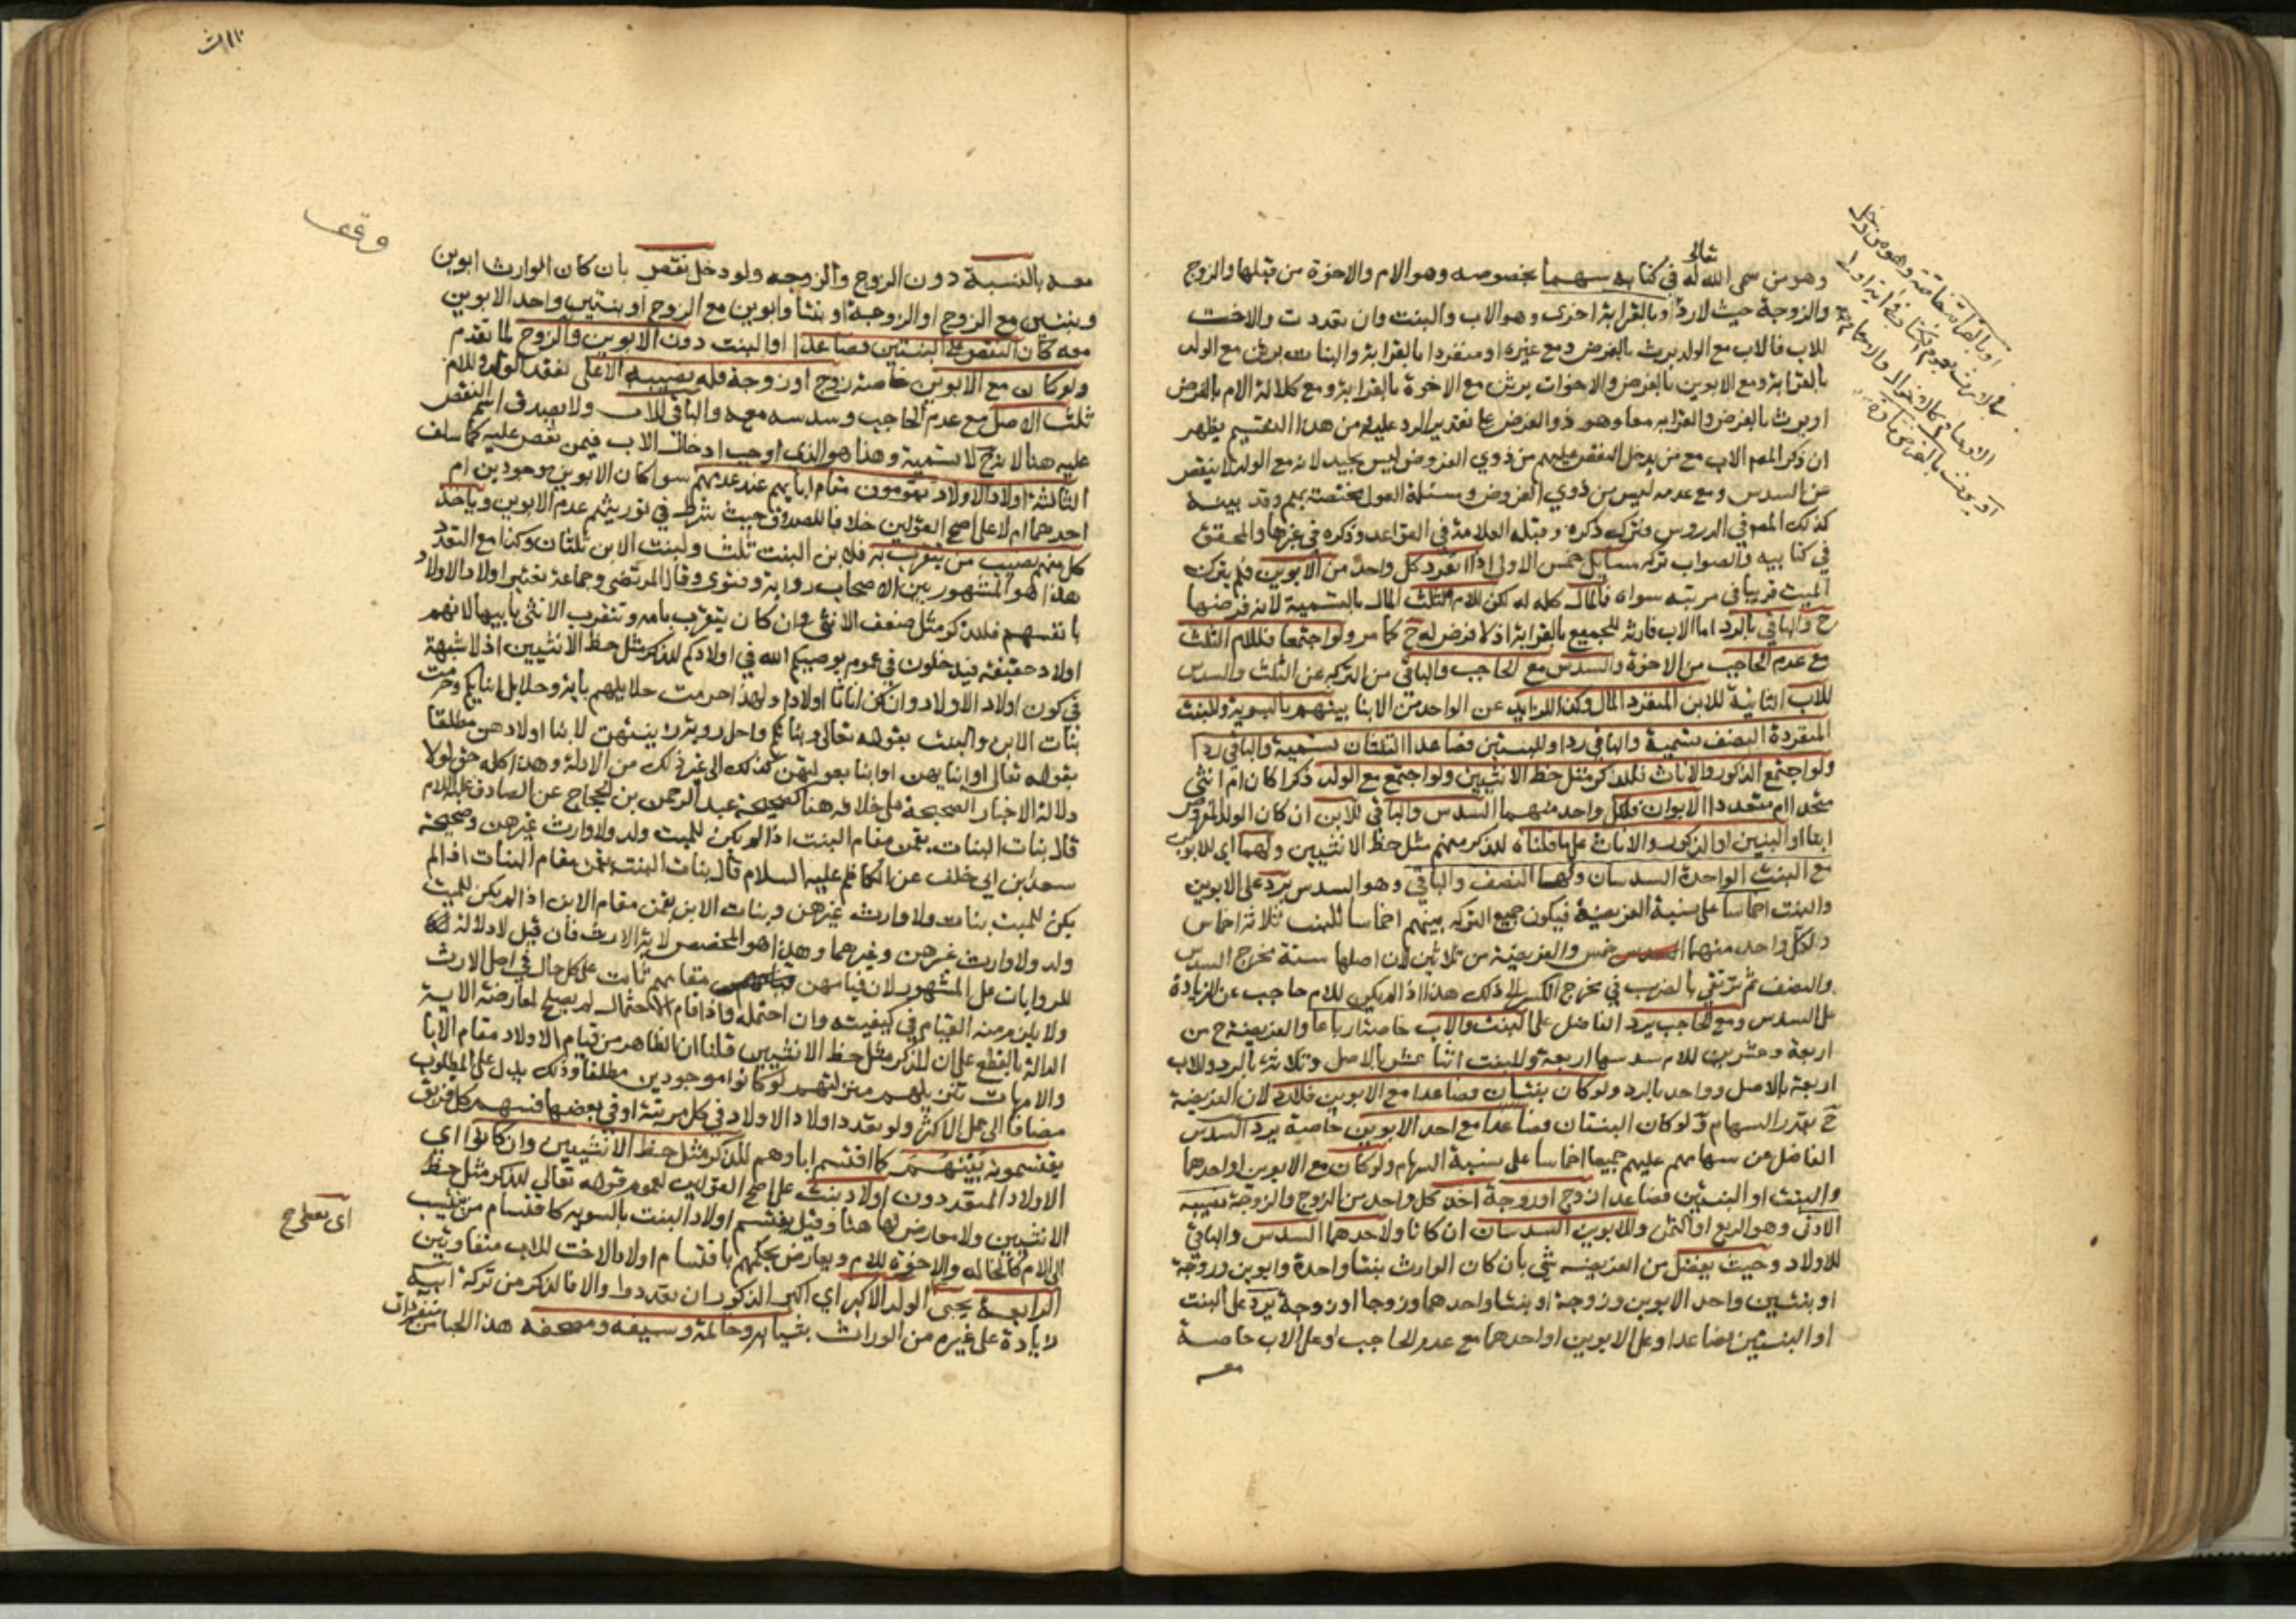 تعالى
وهو من سمى الله له في كتابه سهما بخصوصه وهو الام والاخوة من قبلها والزوج
والزوجة حيث لا رد او بالقرابة اخرى وهو الاب والبنت وان تعددت والاخت
للاب فالاب مع الولد يرث بالفرض ومع غيره او منفردا بالقرابة والبنات يرثن مع الولد
بالقرابة ومع الابوين بالفرض والاخوات يرثن مع الاخوة بالقرابة ومع كلالة الام بالفرض
او يرث بالفرض والقرابه معا وهو ذو الفرض على تقدير الرد عليه ومن هذا التقسيم يظهر
ان ذكر المص الاب مع من يدخل النقص عليهم من ذوي الفروض ليس بجيد لانه مع الولد لا ينقص
عن السدس ومع عدمه ليس من ذوي الفروض ومسئلة العول مختصة بهم وقد بينه
كذلك المص في الدروس وترك ذكره وقبله العلامة في القواعد وذكره في غيرها والمحقق
في كتابيه والصواب تركه مسايل خمس الاولى اذا انفرد كل واحد من الابوين فلم يترك
الميت قريبا في مرتبته سواه فالمال كله له لكن للام الثلث المال بالتسمية لانه فرضها
ح والباقي بالرد اما الاب فارثه للجميع بالقرابة اذ لا فرض له ح كما مر ولو اجتمعا فللام الثلث
مع عدم الحاجب من الاخوة والسدس مع الحاجب والباقي من التركه عن الثلث والسدس
للاب الثانية للابن المنفرد المال وكذا للزايد عن الواحد من الابنا بينهم بالسوية وللبنت
المنفردة النصف تسمية والباقي ردا وللبنتين فصاعدا الثلثان تسمية والباقي ردا
ولو اجتمع الذكور والاناث فللذكر مثل حظ الانثيين ولو اجتمع مع الولد ذكرا كان ام انثى
متحدا ام متعددا الابوان فلكل واحد منهما السدس والباقي للابن ان كان الولد المفروض
ابنا او البنين او الذكور والاناث على ما قلناه للذكر منهم مثل حظ الانثيين ولهما اي للابوين
مع البنت الواحدة السدسان ولها النصف والباقي وهو السدس يرد على الابوين
والبنت اخماسا على نسبة الفريضة فيكون جميع التركه بينهم اخماسا للبنت ثلاثة اخماس
ولكل واحد منهما خمس والفريضة من ثلاثين لان اصلها ستة مخرج السدس
والنصف ثم ترتقي بالضرب في مخرج الكسر الى ذلك هذا اذا لم يكن للام حاجب عن الزيادة
على السدس ومع الحاجب يرد الفاضل على البنت والاب خاصة ارباعا والفريضة ح من
اربعة وعشرين للام سدسها اربعة وللبنت اثنا عشر بالاصل وثلاثة بالرد وللاب
اربعة بالاصل وواحد بالرد ولو كان بنتان فصاعدا مع الابوين فلا رد لان الفريضة
ح بقدر السهام ولو كان البنتان فصاعدا مع احد الابوين خاصة يرد السدس
الفاضل عن سهامهم عليهم جميعا اخماسا على نسبة السهام ولو كان مع الابوين او احدهما
والبنت او البنتين فصاعدا زوج او زوجة اخذ كل واحد من الزوج والزوجة نصيبه
الادنى وهو الربع او الثمن وللابوين السدسان ان كانا ولاحدهما السدس والباقي
للاولاد وحيث يفضل من الفريضه شي بان كان الوارث بنتا واحدة وابوين وزوجة
او بنتين واحد الابوين وزوجة او بنتا واحدهما وزوجا او زوجة يرد على البنت
او البنتين فصاعدا وعلى الابوين او احدهما مع عدم الحاجب او على الاب خاصة
معه
معه بالنسبة دون الزوج والزوجه ولو دخل نقص بان كان الوارث ابوين
وبنتين مع الزوج او الزوجة او بنتا وابوين مع الزوج او بنتين واحد الابوين
معه كان النقص على البنتين فصاعدا او البنت دون الابوين والزوج لما تقدم
ولو كان مع الابوين خاصة زوج او زوجة فله نصيبه الاعلى لفقد الولد وللام
ثلث الاصل مع عدم الحاجب وسدسه معه والباقي للاب ولا يصدق اسم النقص
عليه هنا لانه ح لا تسمية وهذا هو الذي اوجب ادخال الاب فيمن نقص عليه كما سلف
الثالثة اولاد الاولاد يقومون مقام ابائهم عند عدمهم سوا كان الابوين موجودين ام
احدهما ام لا على اصح القولين خلافا للصدوق حيث شرط في توريثهم عدم الابوين وياخذ
كل منهم نصيب من يتقرب به فلابن البنت ثلث ولبنت الابن ثلثان وكذا مع التعدد
هذا هو المشهور بين الاصحاب رواية وفتوى وقال المرتضى وجماعة يعتبر اولاد الاولاد
بانفسهم فللذكر مثل ضعف الانثى وان كان يتقرب بامه وتتقرب الانثى بابيها لانهم
اولاد حقيقة فيدخلون في عموم يوصيكم الله في اولادكم للذكر مثل حظ الانثيين اذ لا شبهة
في كون اولاد الاولاد وان كن اناثا اولادا ولهذا حرمت حلايلهم باية وحلايل ابنائكم وحرمت
بنات الابن والبنت بقوله تعالى وبناتكم واحل رؤية زينتهن لابنا اولادهن مطلقا
بقوله تعالى او ابنايهن او ابنا بعولتهن كذلك الى غير ذلك من الادلة وهذا كله حق لولا
دلالة الاخبار الصحيحة على خلافه هنا كصحيحة عبد الرحمن بن الحجاج عن الصادق عليه السلام
قال بنات البنات يقمن مقام البنت اذا لم يكن للميت ولد ولا وارث غيرهن وصحيحة
سعد بن ابي خلف عن الكاظم عليه السلام قال بنات البنت يقمن مقام البنات اذا لم
يكن للميت بنات ولا وارث غيرهن وبنات الابن يقمن مقام الابن اذا لم يكن للميت
ولد ولا وارث غيرهن وغيرهما وهذا هو المخصص لاية الارث فان قيل لا دلالة
للروايات على المشهور لان قيامهن مقامهم ثابت على كل حال في اصل الارث
ولا يلزم منه القيام في كيفيته وان احتمله واذا قام الاحتمال لم يصلح لمعارضة الاية
الدالة بالقطع على ان للذكر مثل حظ الانثيين قلنا ان الظاهر من قيام الاولاد مقام الابا
والامهات تنزيلهم منزلتهم لو كانوا موجودين مطلقا وذلك يدل على المطلوب
مضافا الى عمل الاكثر ولو تعدد اولاد الاولاد في كل مرتبة او في بعضها فسهم كل فريق
يقتسمونه بينهم كما اقتسم اباوهم للذكر مثل حظ الانثيين وان كانوا اي
الاولاد المتعددون اولاد بنت على اصح القولين لعموم قوله تعالى للذكر مثل حظ
الانثيين ولا معارض لها هنا وقيل يقتسم اولاد البنت بالسويه كاقتسام من ينتسب
الى الام كالخاله والاخوة للام ويعارض بحكمهم باقتسام اولاد الاخت للاب متفاوتين
الرابعة يحبى الولد الاكبر اي اكبر الذكور ان تعددوا والا فالذكر من تركة ابيه
زيادة على غيره من الوراث بثيابه وخاتمه وسيفه ومصحفه هذا الحبا من متفردات
وقف